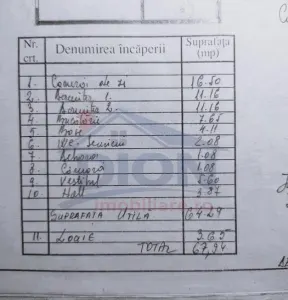 Nr. crt. Denumirea încăperii Suprafața (mp)
1. Camera de zi 16.50
2. 1. 11.16
3. 2. 11.16
4. Bucătărie 7.65
5 4.11
6 serviciu 2.08
7 1.08
8 Cămară 1.08
9 Vestibul 5.60
10 Hall
SUPRAFAȚA UTILĂ 64.29
11. LOGIE 3.65
TOTAL 67,94
DION
imobiliare.ro